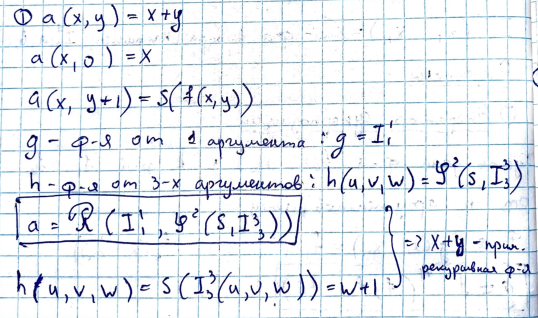 ① a(x,y) = x+y
a(x,0) = x
a(x, y+1) = S(f(x,y))
g - ф-я от 1 аргумента: g = I₁¹
h - ф-я от 3-х аргументов: h(u,v,w) = 𝒮²(S, I₃³)
a = R(I₁¹, 𝒮²(S, I₃³))
h(u,v,w) = S(I₃³(u,v,w)) = w+1
} => x+y - прим.
рекурсивная ф-я